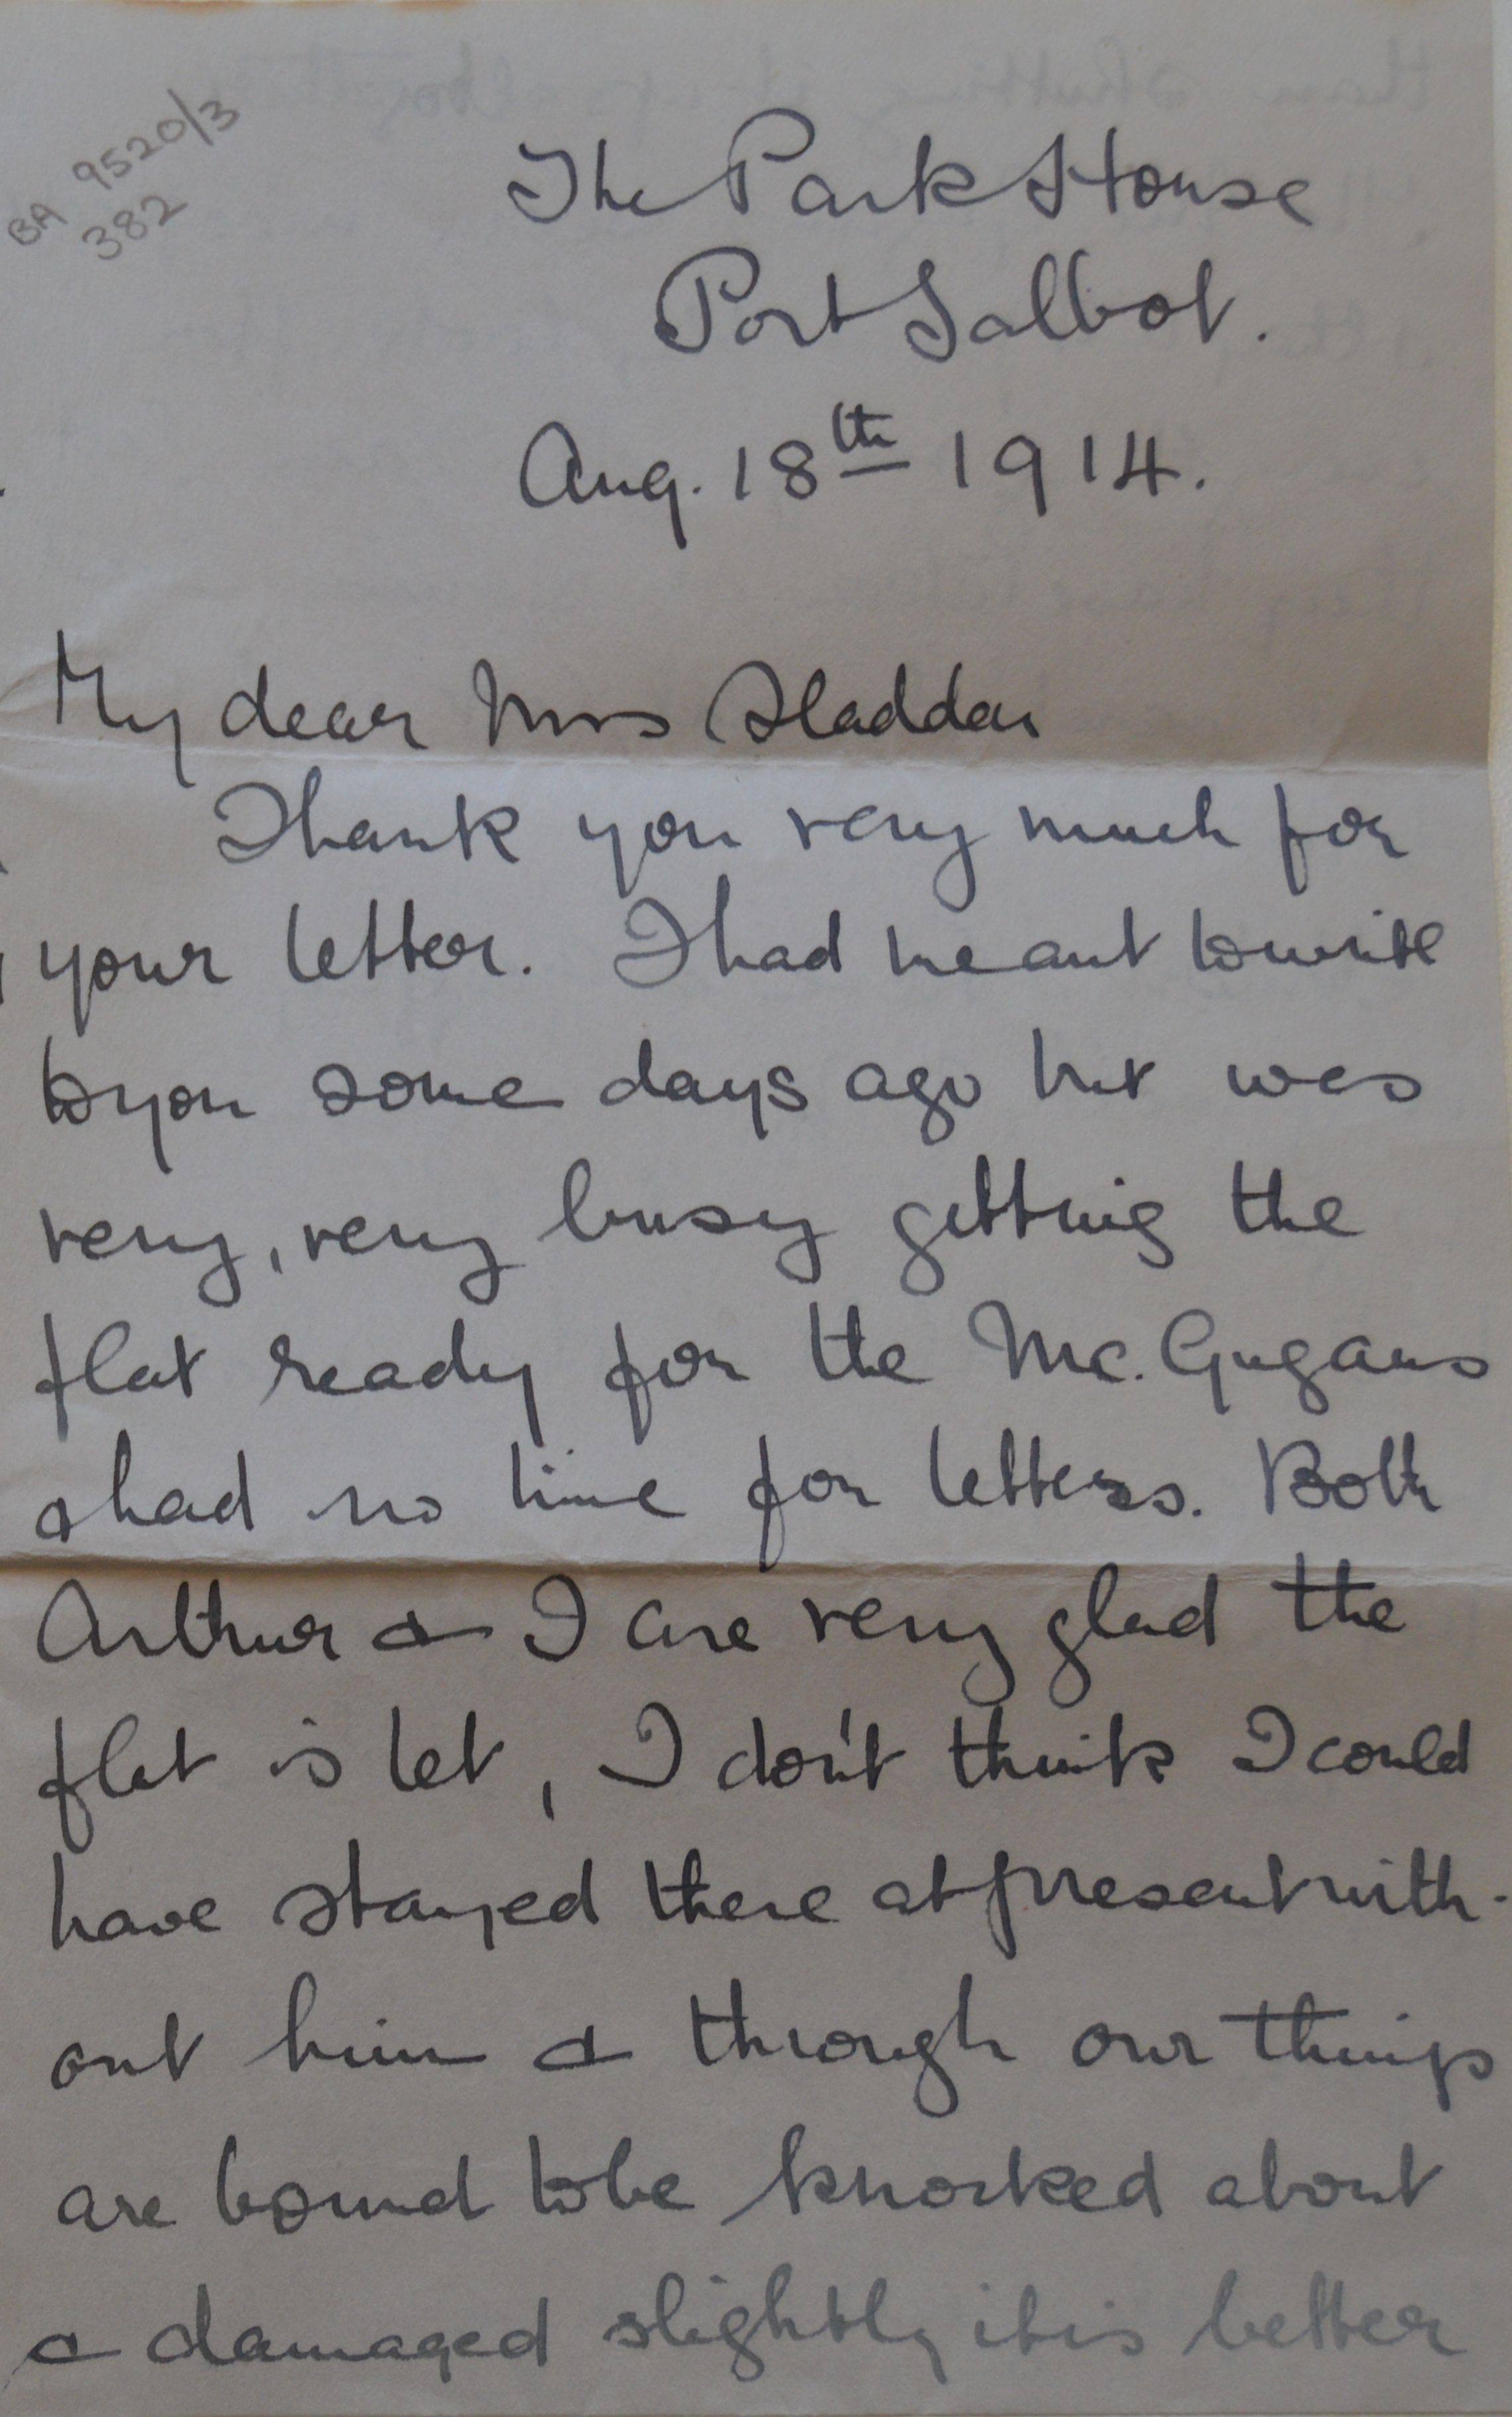 BA 9520/3
382
The Park House
Port Talbot.
Aug. 18th 1914.
My dear Mrs Sladden
Thank you very much for
your letter. I had meant to write
to you some days ago but was
very, very busy getting the
flat ready for the Mc. Gugans
& had no time for letters. Both
Arthur & I are very glad the
flat is let, I don't think I could
have stayed there at present with-
out him & through our things
are bound to be knocked about
& damaged slightly it is better